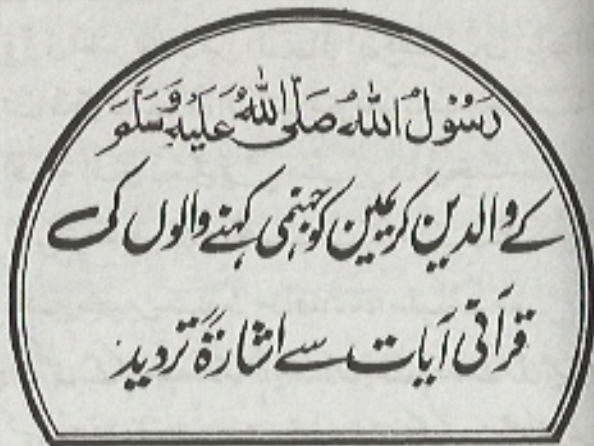 رَسُوْلُ اللّٰهِ صَلَّى اللّٰهُ عَلَيْهِ وَسَلَّمَ
کے والدین کریمین کو جہنمی کہنے والوں کی
قرآنی آیات سے اشارۃً تردید